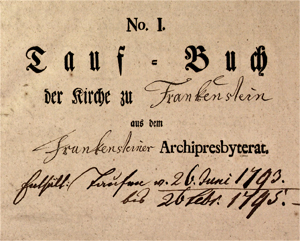 No. I.
Tauf-Buch
der Kirche zu Frankenstein
aus dem
Frankensteiner Archipresbyterat.
Enthält: Taufen v. 26. Juni 1793.
bis 26 Febr. 1795.-